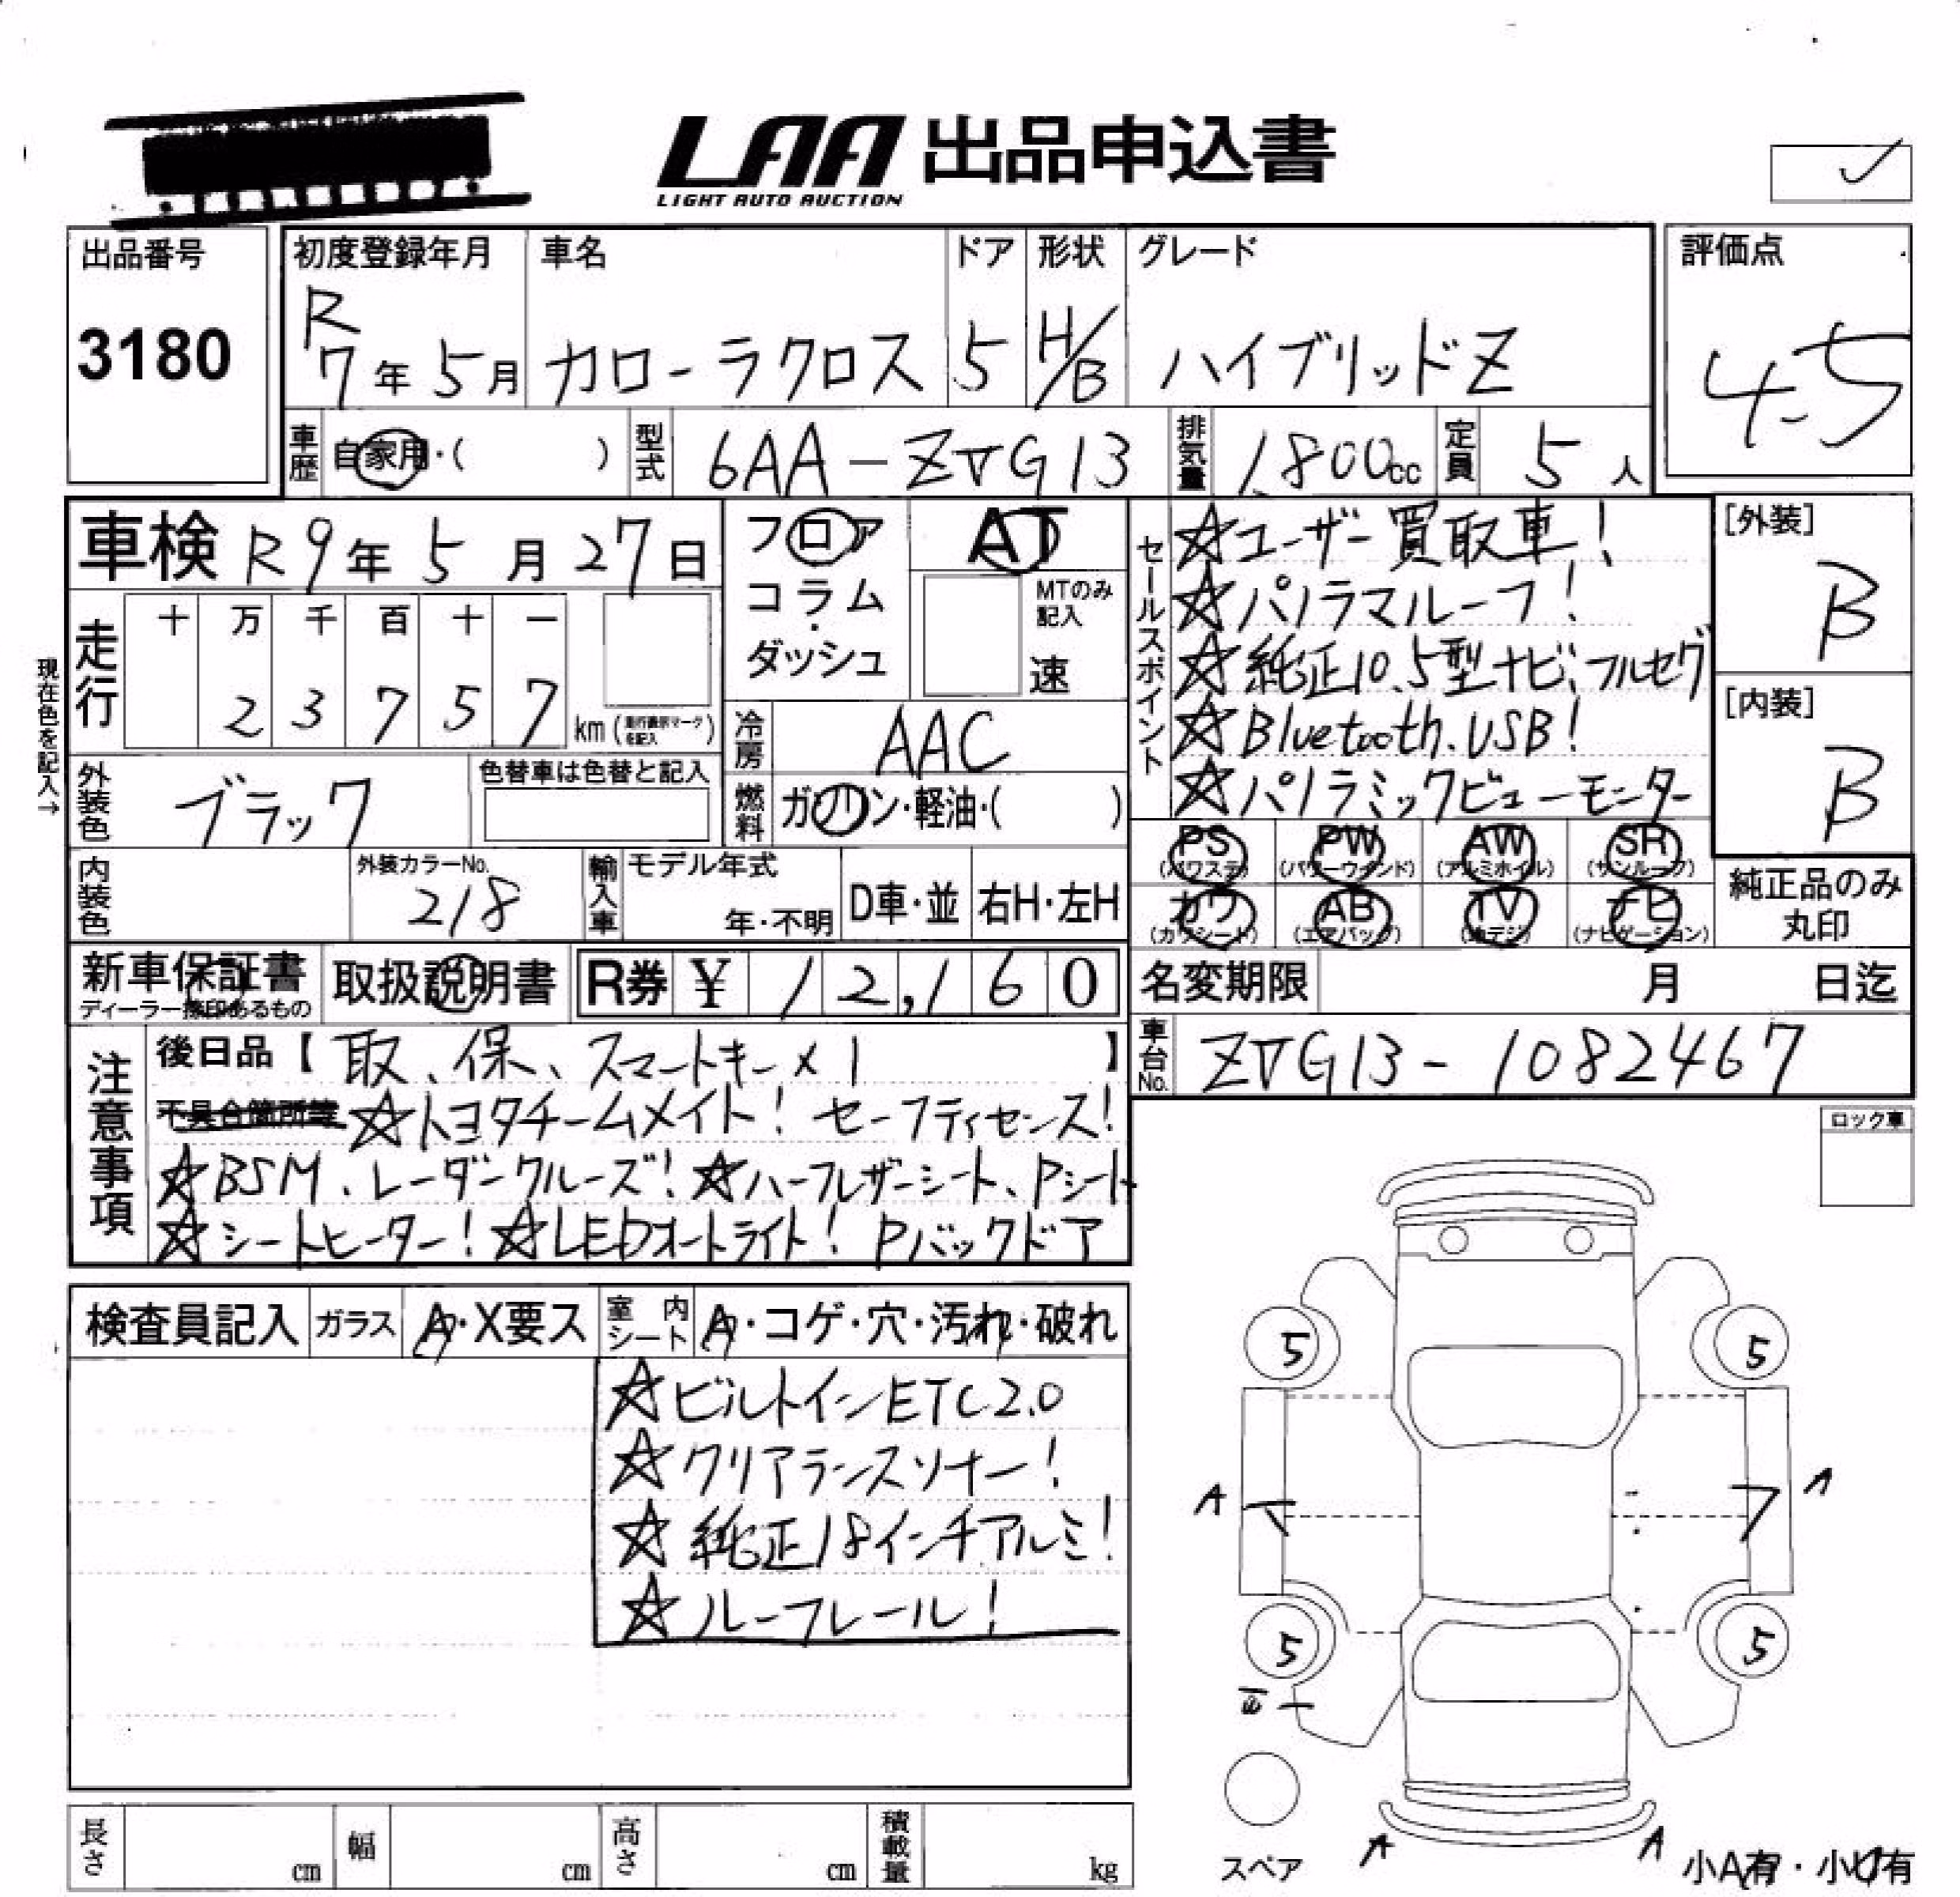 LAA 出品申込書
LIGHT AUTO AUCTION
出品番号
3180
初度登録年月
R
7年5月
車名
カローラクロス
ドア
5
形状
H/B
グレード
ハイブリッドZ
評価点
4.5
車歴 自家用・( )
型式 6AA-ZVG13
排気量 1,800cc
定員 5人
車検 R9年5月27日
走行
十 万 千 百 十 一
2 3 7 5 7 km (走行表示マークを記入)
現在色を記入→
フロア
コラム
・
ダッシュ
AT
MTのみ記入
速
冷房 AAC
燃料 ガソリン・軽油・( )
外装色 ブラック
色替車は色替と記入
内装色
外装カラーNo.
218
輸入車
モデル年式
年・不明
D車・並
右H・左H
セールスポイント
☆ユーザー買取車!
☆パノラマルーフ!
☆純正10.5型ナビ、フルセグ
☆Bluetooth.USB!
☆パノラミックビューモニター
[外装]
B
[内装]
B
PS (パワステ)
PW (パワーウインド)
AW (アルミホイル)
SR (サンルーフ)
カワ (カワシート)
AB (エアバック)
TV (地デジ)
ナビ (ナビゲーション)
純正品のみ
丸印
新車保証書
ディーラー捺印あるもの
取扱説明書
R券 ¥ 12,160
名変期限 月 日迄
車台No. ZVG13-1082467
注意事項
後日品【取、保、スマートキー×1】
不具合箇所等 ☆トヨタチームメイト! セーフティセンス!
☆BSM、レーダークルーズ!☆ハーフレザーシート、Pシート
☆シートヒーター!☆LEDオートライト! Pバックドア
ロック車
検査員記入
ガラス A・X要ス
室内シート
・コゲ・穴・汚れ・破れ
☆ビルトインETC2.0
☆クリアランスソナー!
☆純正18インチアルミ!
☆ルーフレール!
5
5
A
A
5
5
A
A
スペア
小A有・小U有
長さ cm
幅 cm
高さ cm
積載量 kg